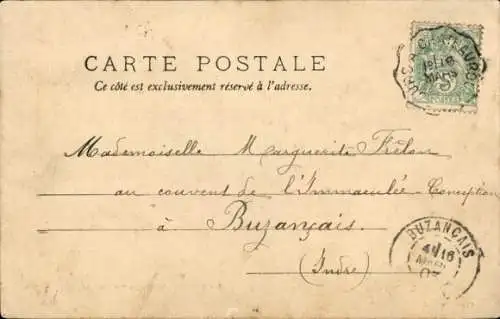 CARTE POSTALE
Ce côté est exclusivement réservé à l'adresse.
Mademoiselle Marguerite Frélon
au couvent de l'Immaculée-Conception
à Buzançais.
(Indre)
CHATEAUROUX
16
MARS
5
BUZANÇAIS
16